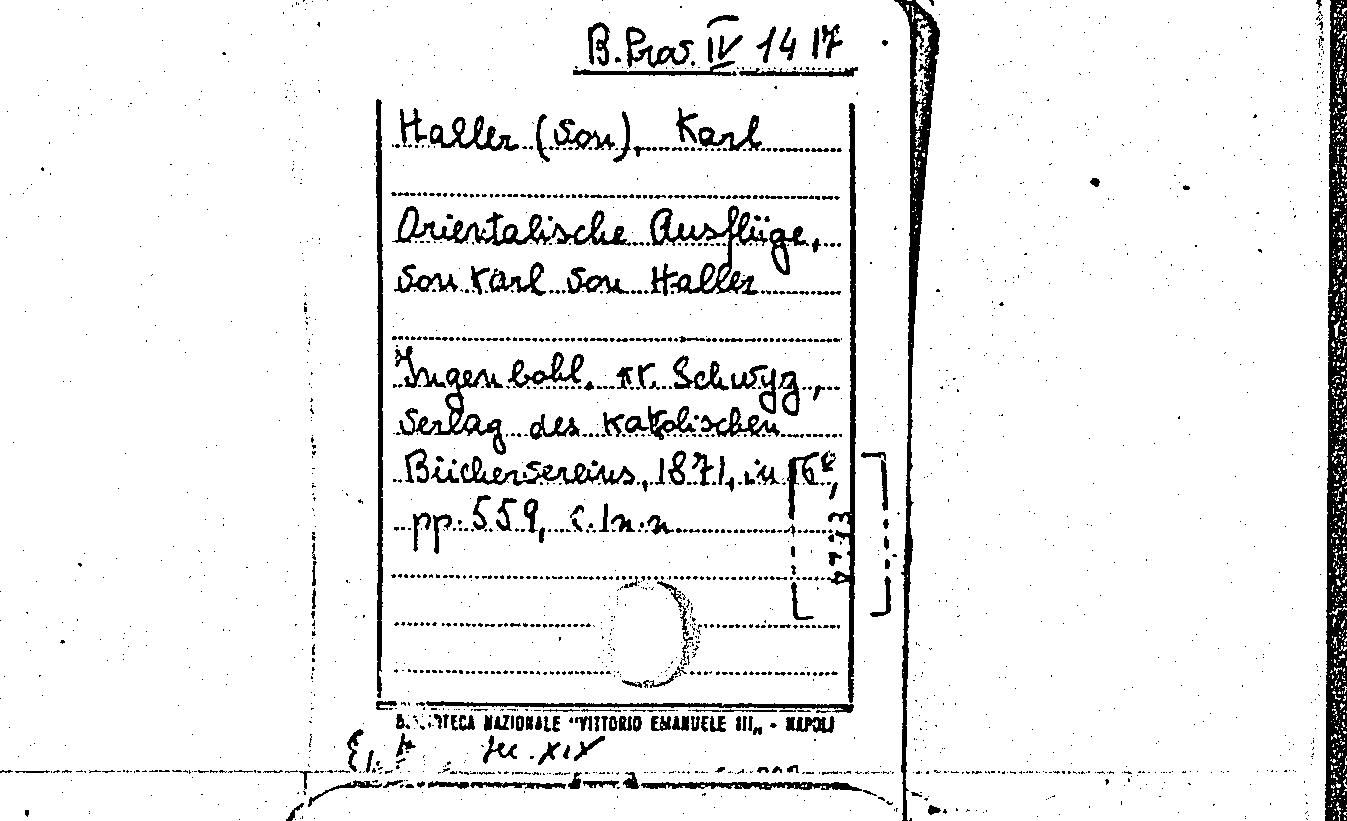 B. Prov. IV 14 17
Haller (von), Karl
Orientalische Ausflüge,
von Karl von Haller
Ingenbohl. Kr. Schwyz,
Verlag des Katolischen
Büchervereins, 1871, in 16°,
pp. 559, c. 1 n. n.
BIBLIOTECA NAZIONALE "VITTORIO EMANUELE III„ - NAPOLI
sec. XIX